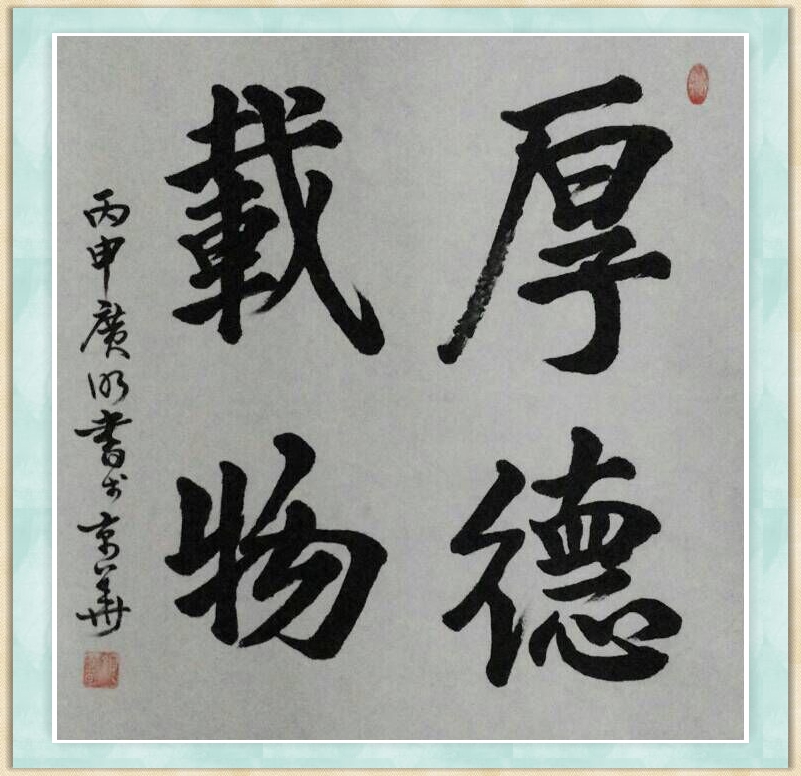 厚德
載物
丙申廣明書於京華